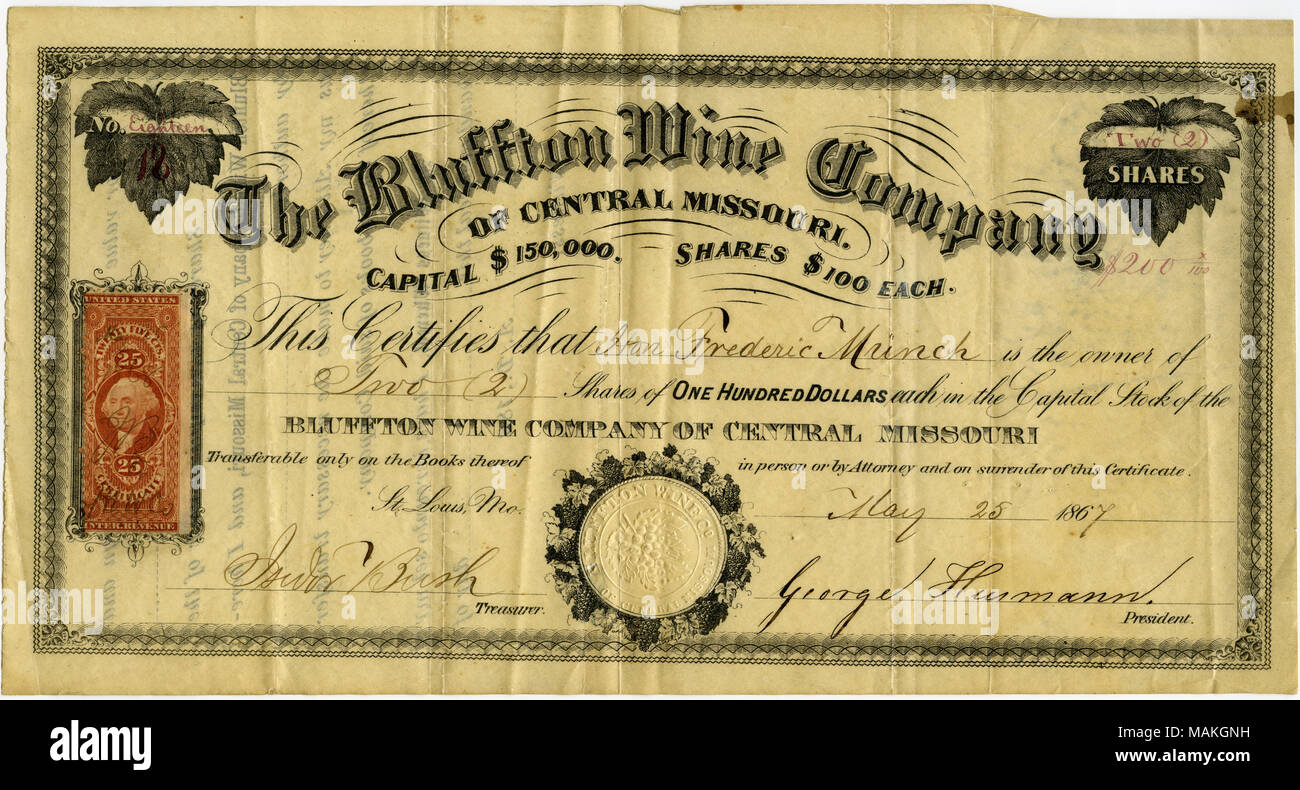 No. Eighteen
18
Two (2)
SHARES
The Bluffton Wine Company
OF CENTRAL MISSOURI.
CAPITAL $150,000. SHARES $100 EACH.
$200 x/100
UNITED STATES
TWENTY FIVE CTS.
25
25
CERTIFICATE
INTER. REVENUE
This Certifies that Hon Frederic Münch is the owner of
Two (2) Shares of ONE HUNDRED DOLLARS each in the Capital Stock of the
BLUFFTON WINE COMPANY OF CENTRAL MISSOURI
Transferable only on the Books thereof in person or by Attorney and on surrender of this Certificate.
St. Louis, Mo. May 25 1867
WINE CO.
Isidor Bush
Treasurer.
George Husmann.
President.
alamy
Image ID: MAKGNH
www.alamy.com